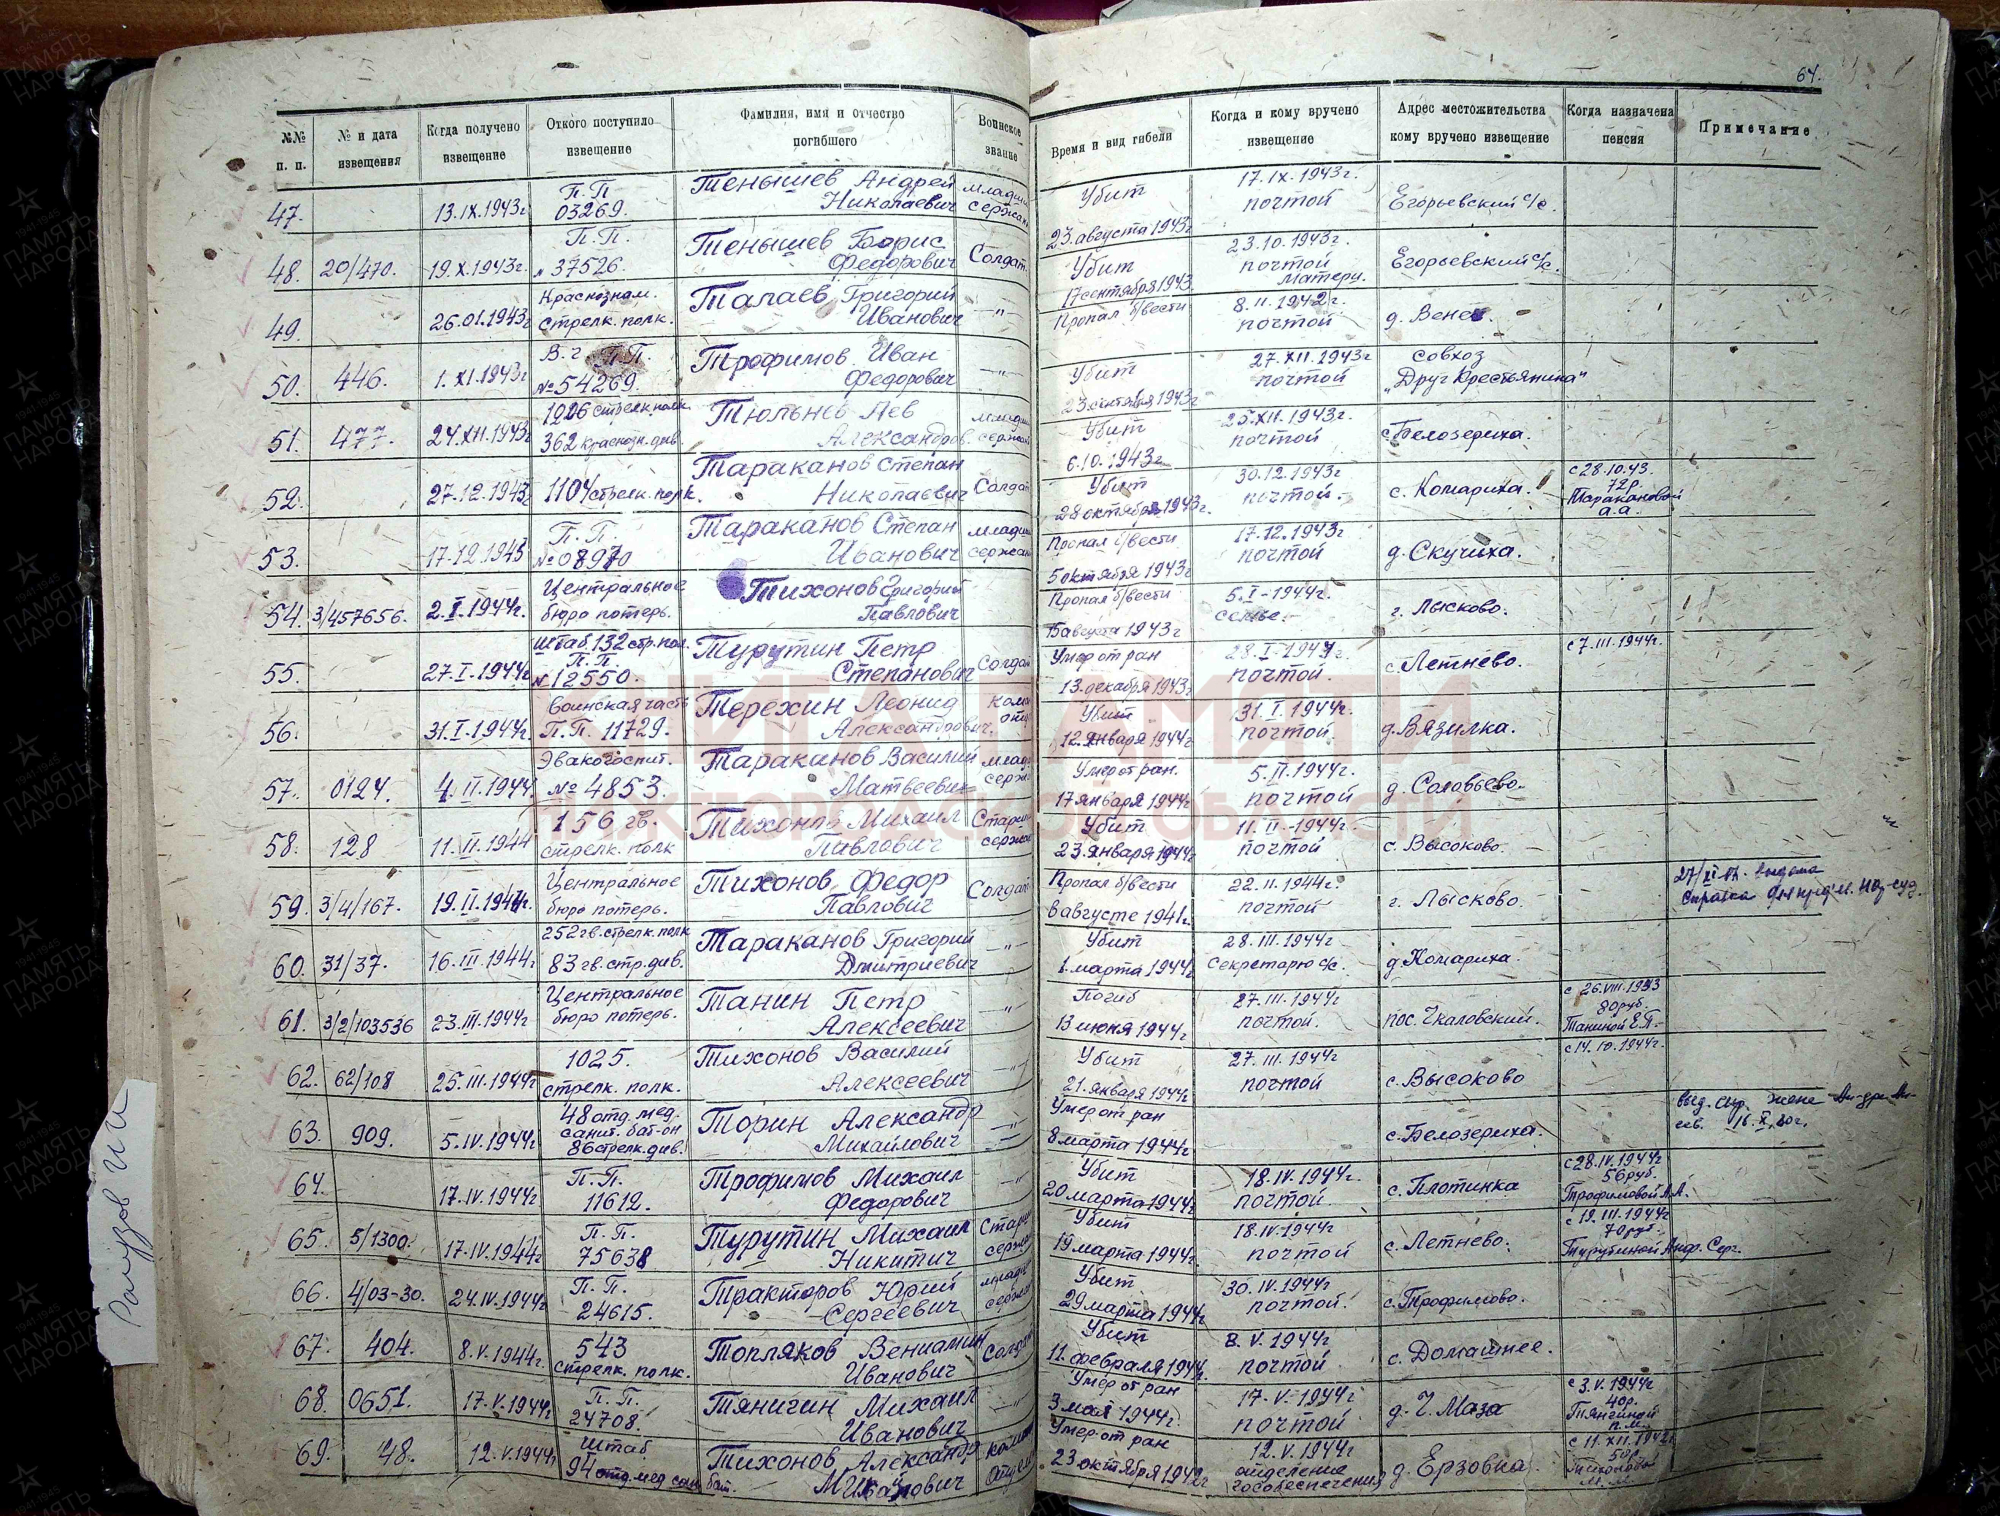 64.
№№ п. п.
№ и дата извещения
Когда получено извещение
Откого поступило извещение
Фамилия, имя и отчество погибшего
Воинское звание
Время и вид гибели
Когда и кому вручено извещение
Адрес местожительства кому вручено извещение
Когда назначена пенсия
Примечание
47. 13.IX.1943г П.П. 03269. Тенышев Андрей Николаевич Убит 23. августа 1943г 17.IX.1943г. почтой Егорьевский с/с.
48. 20/470. 19.X.1943г. П.П. № 37526. Тенышев Борис Федорович Солдат. Убит 17 сентября 1943 23.10.1943г. почтой Матери. Егорьевский с/с.
49. 26.01.1943г Краснознам. стрелк. полк. Талаев Григорий Иванович —"— Пропал б/вести 8.11.1942г. почтой д. Венец.
50. 446. 1.XI.1943г В.ч П.П. №54269. Трофимов Иван Федорович —"— Убит 23. сентября 1943г 27.XII.1943г почтой совхоз „Друг Крестьянина"
51. 477. 24.XII.1943г 1026 стрелк. полк. 362 краснозн. див. Тюльнев Лев Александров. Убит 6.10.1943г 25.XII.1943г. почтой с. Белозериха.
52. 27.12.1943г 1104 стрелк. полк. Тараканов Степан Николаевич Солдат Убит 28 октября 1943г. 30.12.1943г почтой. с. Комариха. с 28.10.43. 72р. Таракановой А.А.
53. 17.12.1943 П.П. №08970 Тараканов Степан Иванович Пропал б/вести 5 октября 1943г 17.12.1943г почтой д. Скучиха.
54. 3/457656. 2.I.1944г. Центральное бюро потерь. Тихонов Григорий Павлович Пропал б/вести августа 1943г 5.I-1944г. семье. г. Лысково.
55. 27.I.1944г Штаб 132 стр. пол. П.П. № 12550. Турутин Петр Степанович Солдат Умер от ран 13. декабря 1943г 28.I-1944г почтой. с. Летнево. с 7.III.1944г.
56. 31.I.1944г. Воинская часть П.П. 11729. Терехин Леонид Александрович. Убит 12. января 1944г 31.I.1944г. почтой. д. Вязилка.
57. 0124. 4.II.1944 Эвакогоспит. № 4853. Тараканов Василий Матвеевич Умер от ран. 17 января 1944г 5.II.1944г. почтой д. Соловьево.
58. 128 11.II.1944 156 гв. стрелк. полк Тихонов Михаил Павлович Убит 23. января 1944г 11.II-1944г. почтой с. Высоково.
59. 3/4/167. 19.II.1944г. Центральное бюро потерь. Тихонов Федор Павлович Солдат Пропал б/вести в августе 1941г. 22.II.1944г. почтой г. Лысково. выдана справка
60. 31/37. 16.III.1944г. 252 гв. стрелк. полк 83 гв. стр. див. Тараканов Григорий Дмитриевич —"— Убит 1. марта 1944г 28.III.1944г секретарю с/с. д. Комариха.
61. 3/2/103536 23.III.1944г Центральное бюро потерь. Танин Петр Алексеевич —"— Погиб 13 июня 1944г 27.III.1944г почтой. пос. Чкаловский. с 26.VIII.1943 80 руб. Таниной Е.П.
62. 62/108 25.III.1944г 1025. стрелк. полк. Тихонов Василий Алексеевич —"— Убит 21. января 1944г 27.III.1944г почтой с. Высоково с 14.10.1944г.
63. 909. 5.IV.1944г 48 отд. мед. санит. бат-он 86 стрелк. див. Торин Александр Михайлович —"— Умер от ран 8 марта 1944г с. Белозериха. жене
64. 17.IV.1944г П.П. 11612. Трофимов Михаил Федорович —"— Убит 20 марта 1944г 18.IV.1944г. почтой. с. Плотинка с 28.IV.1944г 56 руб. Трофимовой А.А.
65. 5/1300. 17.IV.1944г П.П. 75638 Турутин Михаил Никитич Убит 19 марта 1944г 18.IV-1944г почтой с. Летнево. с 19.III.1944г 70 руб. Турутиной Анф. Серг.
66. 4/03-30. 24.IV.1944г П.П. 24615. Тракторов Юрий Сергеевич Убит 29 марта 1944г 30.IV.1944г почтой. с. Трофимово.
67. 404. 8.V.1944г. 543 стрелк. полк. Топляков Вениамин Иванович Солдат Убит 11. февраля 1944г. 8.V.1944г почтой с. Домашнее.
68. 0651. 17.V.1944г П.П. 24708. Тянигин Михаил Иванович —"— Умер от ран 3 мая 1944г. 17-V-1944г почтой д. Ч. Маза с 3.V.1944г 40р. П.М.
69. 48. 12.V.1944г Штаб 94 отд. мед сан бат. Тихонов Александр Умер от ран 23 октября 1942г 12.V.1944г отделение гособеспечения д. Ерзовка. с 11.XII.1942г 50р. М.М.
КНИГА ПАМЯТИ
НИЖЕГОРОДСКОЙ ОБЛАСТИ
ПАМЯТЬ НАРОДА
1941-1945